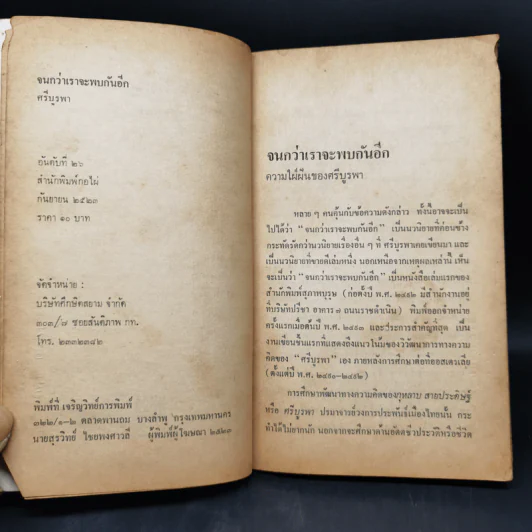 จนกว่าเราจะพบกันอีก
ศรีบูรพา
อันดับที่ ๒๖
สำนักพิมพ์กอไผ่
กันยายน ๒๕๒๓
ราคา ๑๐ บาท
จัดจำหน่าย :
บริษัทศึกษิตสยาม จำกัด
๓๐๓/๗ ซอยสันติภาพ กท.
โทร. ๒๓๓๒๓๘๒
พิมพ์ที่ เจริญวิทย์การพิมพ์
๓๒๒/๑-๒ ตลาดทานถม บางลำพู กรุงเทพมหานคร
นายสุรวิทย์ ไชยพงศาวลี ผู้พิมพ์ผู้โฆษณา ๒๕๒๓
จนกว่าเราจะพบกันอีก
ความใฝ่ฝันของศรีบูรพา
หลาย ๆ คนคุ้นกับข้อความดังกล่าว ทั้งนี้อาจจะเป็น
ไปได้ว่า "จนกว่าเราจะพบกันอีก" เป็นนวนิยายที่ค่อนข้าง
กระทัดรัดกว่านวนิยายเรื่องอื่น ๆ ที่ ศรีบูรพาเคยเขียนมา และ
เป็นนวนิยายที่ขายดีเล่มหนึ่ง นอกเหนือจากเหตุผลเหล่านี้ เห็น
จะเป็นว่า "จนกว่าเราจะพบกันอีก" เป็นหนังสือเล่มแรกของ
สำนักพิมพ์สุภาพบุรุษ (ก่อตั้งปี พ.ศ. ๒๔๙๒ มีสำนักงานอยู่
ที่บริษัทปรีชา อาคาร ๗ ถนนราชดำเนิน) พิมพ์ออกจำหน่าย
ครั้งแรกเมื่อต้นปี พ.ศ. ๒๔๙๓ และประการสำคัญที่สุด เป็น
งานเขียนชิ้นแรกที่แสดงถึงแนวโน้มของวิวัฒนาการทางความ
คิดของ "ศรีบูรพา" เอง ภายหลังการศึกษาต่อที่ออสเตรเลีย
(ตั้งแต่ปี พ.ศ. ๒๔๙๐-๒๔๙๒)
การศึกษาพัฒนาทางความคิดของกุหลาบ สายประดิษฐ์
หรือ ศรีบูรพา ปรมาจารย์วงการประพันธ์เมืองไทยนั้น กระ
ทำได้ไม่ยากนัก นอกจากจะศึกษาด้านอัตตชีวประวัติหรือชีวิต